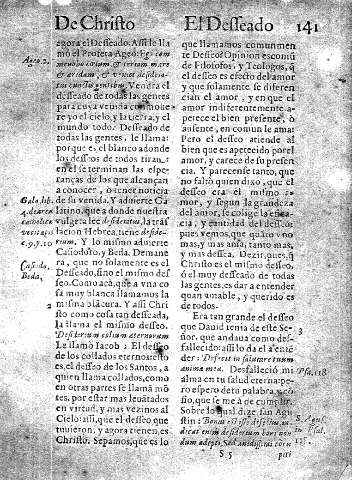 De Christo El Desseado 141
agora el Desseado. Assi le lla
mò el Profeta Ageo:
Ageo. 2.
Vendra el
desseado de todas las gentes
para cuya venida
re yo el cielo, y la tierra, y el
mundo todo. Desseado de
todas las gentes le llama:
porque es el blanco adonde
los desseos de todas
en el se terminan las espe-
ranças de los que alcançan
a conocer, o tener noticia
de su venida. Y aduierte Ga
latino, que a donde nuestra
vulgata lee desideratus, la tras
lacion Hebrea, tiene
Y lo mismo aduierte
Casiodoro, y Beda. Dema
ra, que no solamente es el
Desseado, sino el mismo des
seo. Como acà, que a vna co
sa muy blanca llamamos la
misma blãcura. Y assi Chri
sto como cosa tan desseada,
la llama el mismo desseo.
Le llamò Iacob: El desseo
de los collados eternos:
es, el desseo de los Santos, a
quien llama collados, como
en otras partes se llamã mõ
tes, por estar mas leuãtados
en virtud, y mas vezinos al
Cielo: assi, que el desseo que
tuuieron, y agora tienen es
Christo. Sepamos, que es lo
Galo. lib.
Casiodo.
Beda,
que llamamos comunmen
te Desseo? Opinion es comũ
de Filosofos, y Teologos, q̃
el desseo es efecto del amor
y que solamente se diferen
cian el amor, y en que el
amor indiferentemente
apetece el bien presente, ò
ausente, en comun le ama:
Pero el desseo atiende al
bien que es apetecido por el
amor, y carece de su presen
cia. Y parecense tanto, que
no faltò quien dixo, que el
desseo era el mismo a-
mor, y segun la grandeza
del amor, se colige la efica-
cia, y cantidad del desseo:
pues vemos, que quãto vno
mas, y mas ama, tanto mas,
y mas dessea. Dezir pues, q̃
Christo es el mismo desseo,
ò el muy desseado de todas
las gentes, es dar a entender
quan amable, y querido es
de todos.
Era tan grande el desseo
que Dauid tenia de este Se-
ñor, que andaua como des-
fallecido: assi lo da a entẽ-
der: Deficit in salutare tuum
anima mea. Desfalleciò mi
alma en tu salud eterna: pe-
ro espero de tu palabra,
que se me à de cumplir.
Sobre lo qual dize san Agu
stin:
S 5
Psa. 118
S. Agus.